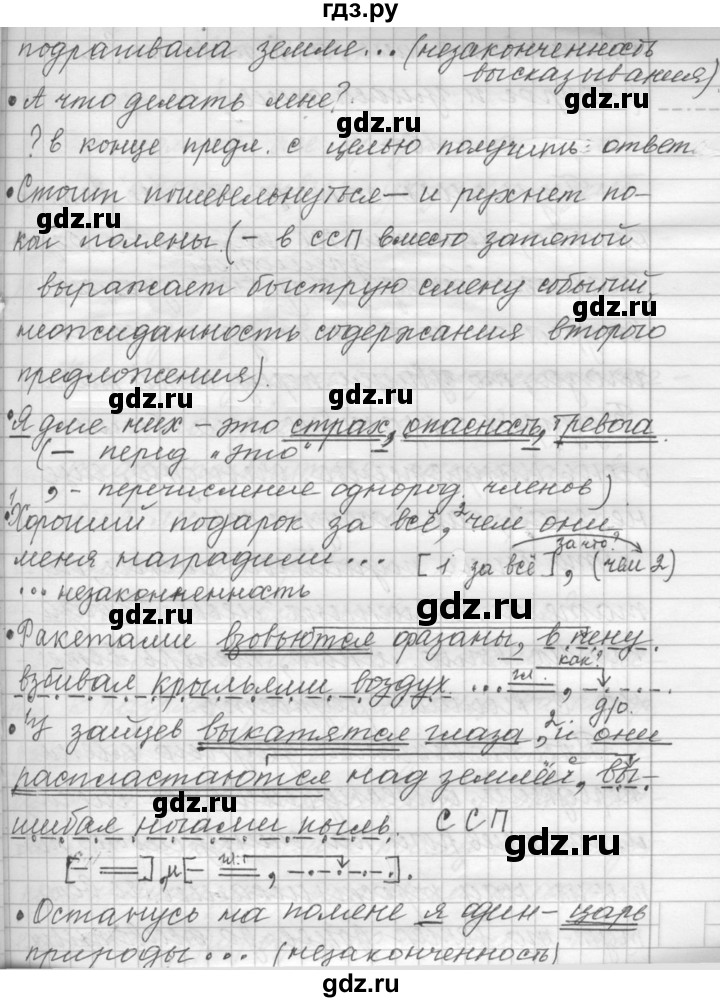 гдз.ру
подрагивала земля... (незаконченность
высказывания)
• А что делать мне?
gdz.ru
? в конце предл. с целью получить ответ
gdz.ru
• Стоит пошевельнуться — и рухнет по-
gdz.ru
кой поляны. (— в ССП вместо запятой
выражает быструю смену событий,
gdz.ru
неожиданность содержания второго
предложения).
gdz.ru
• Я для них – это страх, опасность, тревога.
gdz.ru
(— перед "это"
, - перечисление однород. членов)
gdz.ru
• 1 Хороший подарок за всё, 2 чем они
меня наградили... [1 за всё], (чем 2)
за что?
... незаконченность
gdz.ru
• Ракетами взовьются фазаны, в пену
gdz.ru
взбивая крыльями воздух...
как?
гл.
д/о.
• У зайцев выкатятся глаза, 2 и они
распластаются над землёй, вы-
gdz.ru
шибая ногами пыль. ССП
gdz.ru
[- =], и [- =, -.-.-.].
гл.
• Останусь на поляне я один – царь
gdz.ru
природы... (незаконченность)
gdz.ru